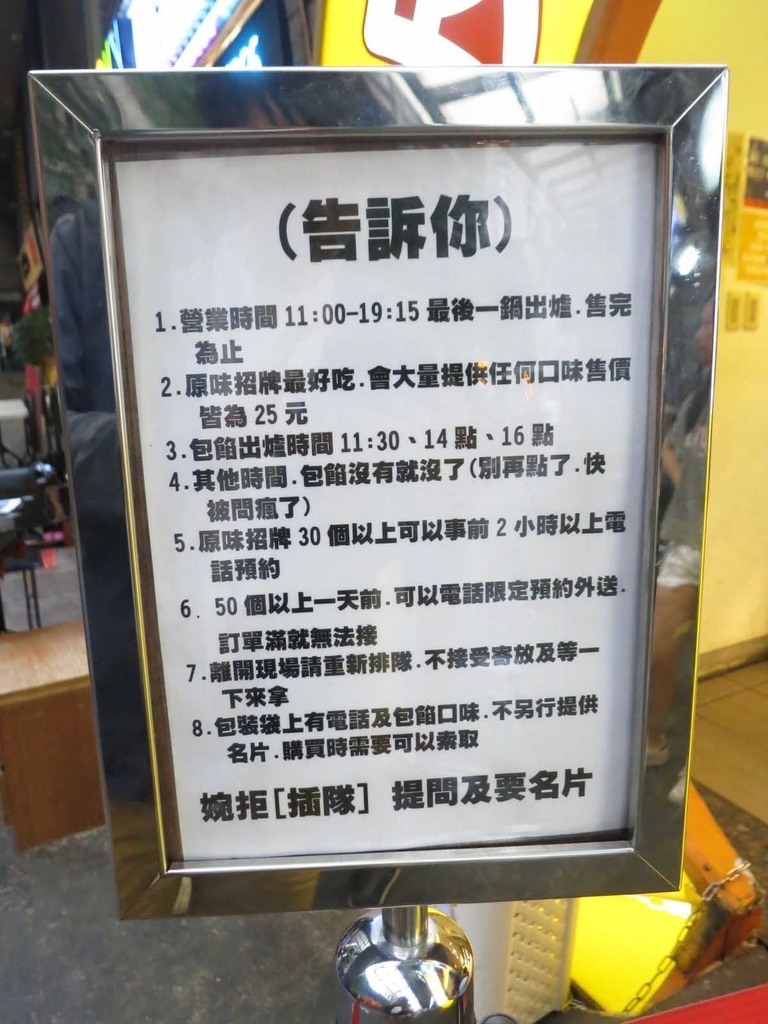 (告訴你)
1.營業時間 11:00-19:15 最後一鍋出爐.售完
為止
2.原味招牌最好吃.會大量提供任何口味售價
皆為 25 元
3.包餡出爐時間 11:30、14 點、16 點
4.其他時間.包餡沒有就沒了(別再點了.快
被問瘋了)
5.原味招牌 30 個以上可以事前 2 小時以上電
話預約
6. 50 個以上一天前.可以電話限定預約外送.
訂單滿就無法接
7.離開現場請重新排隊.不接受寄放及等一
下來拿
8.包裝袋上有電話及包餡口味.不另行提供
名片.購買時需要可以索取
婉拒[插隊] 提問及要名片